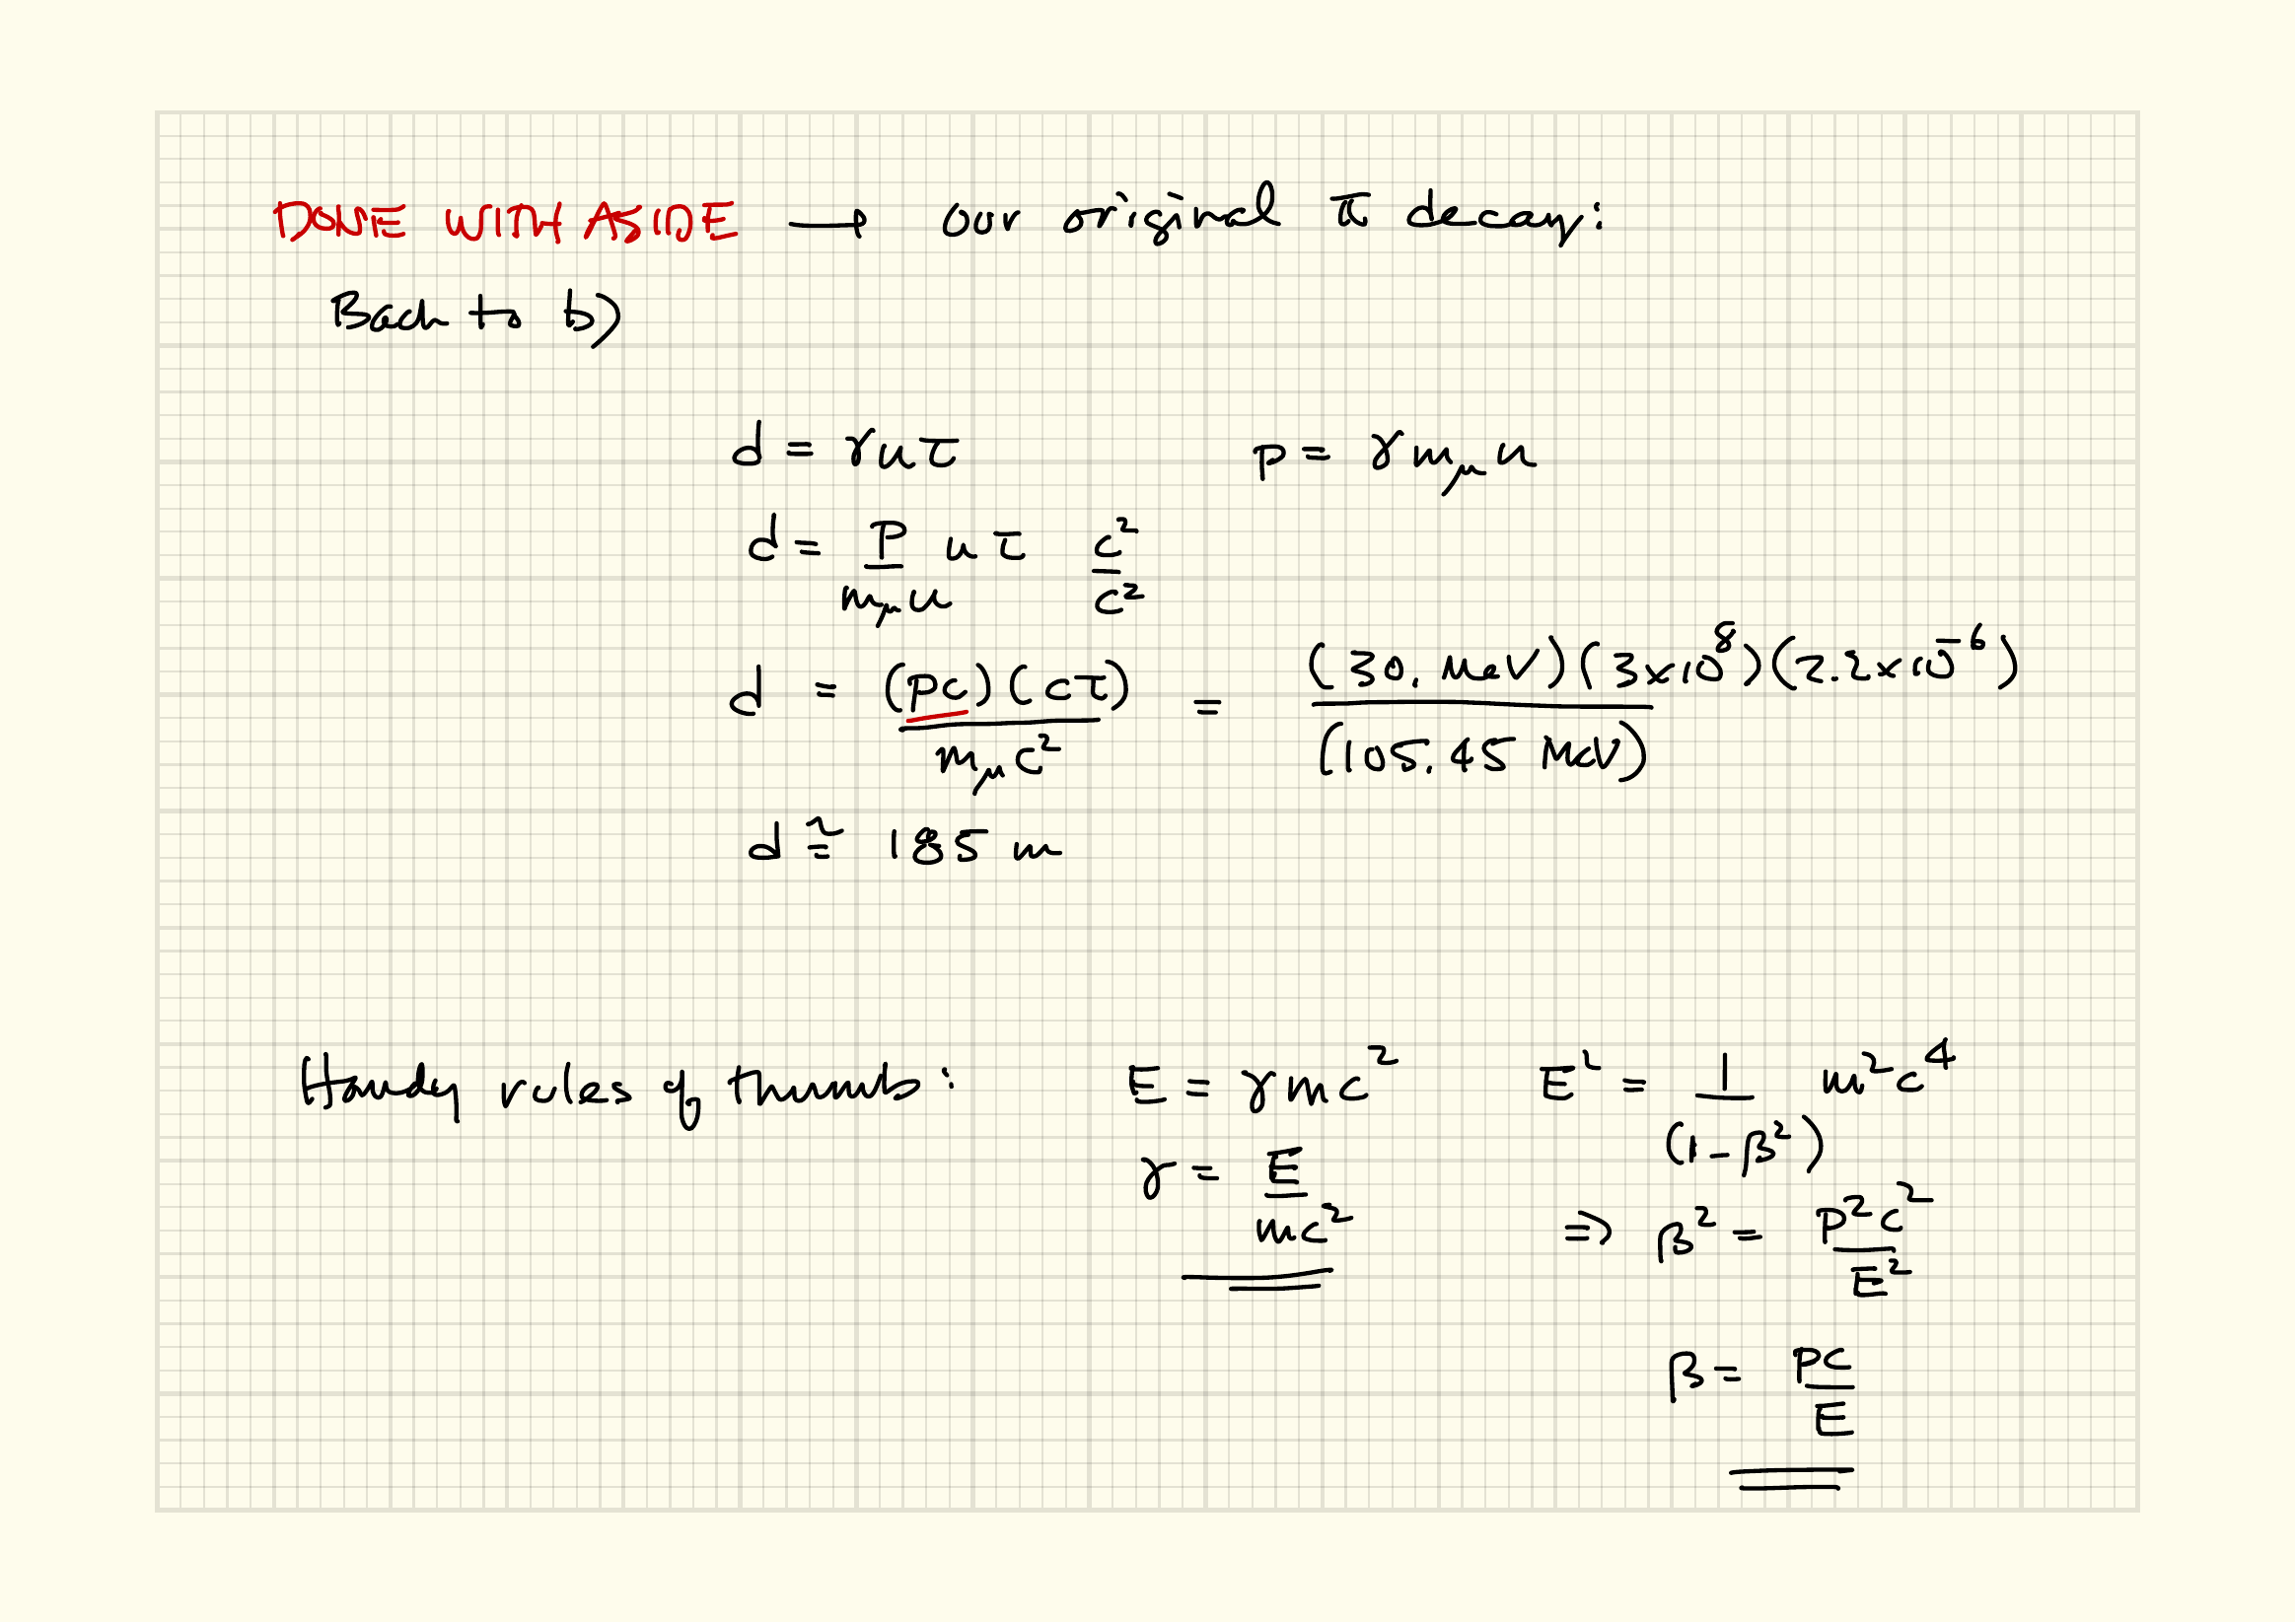 DONE WITH ASIDE → our original π decay:
Back to b)
d = γuτ    p = γm_μ u
d = p/(m_μ u) uτ c²/c²
d = (pc)(cτ)/(m_μ c²) = (30. MeV)(3×10⁸)(2.2×10⁻⁶)/(105.45 MeV)
d ≅ 185 m
Handy rules of thumb:    E = γmc²    E² = 1/(1-β²) m²c⁴
γ = E/mc²    ⇒ β² = p²c²/E²
β = pc/E